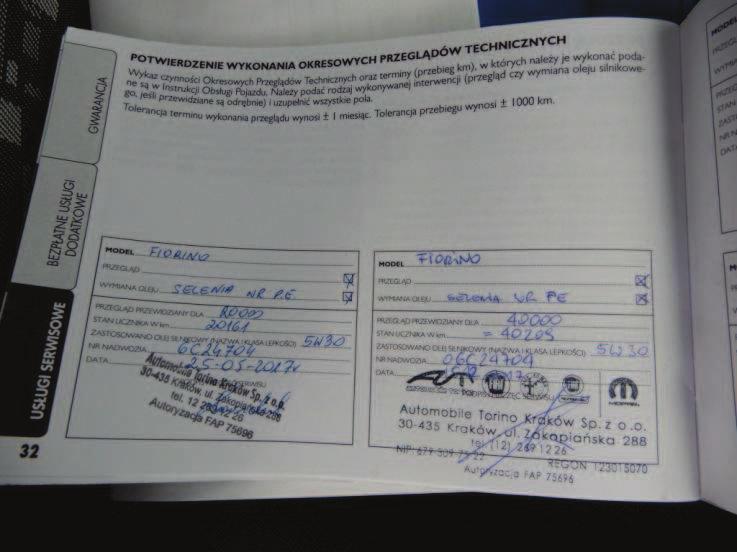 POTWIERDZENIE WYKONANIA OKRESOWYCH PRZEGLĄDÓW TECHNICZNYCH
Wykaz czynności Okresowych Przeglądów Technicznych oraz terminy (przebieg km), w których należy je wykonać poda-
ne są w Instrukcji Obsługi Pojazdu. Należy podać rodzaj wykonywanej interwencji (przegląd czy wymiana oleju silnikowe-
go, jeśli przewidziane są odrębnie) i uzupełnić wszystkie pola.
Tolerancja terminu wykonania przeglądu wynosi ± 1 miesiąc. Tolerancja przebiegu wynosi ± 1000 km.
GWARANCJA
BEZPŁATNE USŁUGI
DODATKOWE
USŁUGI SERWISOWE
32
MODEL FIORINO
PRZEGLĄD
WYMIANA OLEJU SELENIA WR P.E
PRZEGLĄD PRZEWIDZIANY DLA 20000
STAN LICZNIKA W km 20161
ZASTOSOWANO OLEJ SILNIKOWY (NAZWA I KLASA LEPKOŚCI) 5W30
NR NADWOZIA 6C24704
DATA 25-05-2017
Automobile Torino Kraków Sp. z o.o.
30-435 Kraków, ul. Zakopiańska 288
tel. 12 269 12 26
Autoryzacja FAP 75696
MODEL FIORINO
PRZEGLĄD
WYMIANA OLEJU SELENIA WR PE
PRZEGLĄD PRZEWIDZIANY DLA 40000
STAN LICZNIKA W km = 40205
ZASTOSOWANO OLEJ SILNIKOWY (NAZWA I KLASA LEPKOŚCI) 5W30
NR NADWOZIA 06C24704
DATA
MOPAR
Automobile Torino Kraków Sp. z o.o.
30-435 Kraków, ul. Zakopiańska 288
tel. (12) 269 12 26
NIP: 679 309 22 REGON 123015070
Autoryzacja FAP 75696